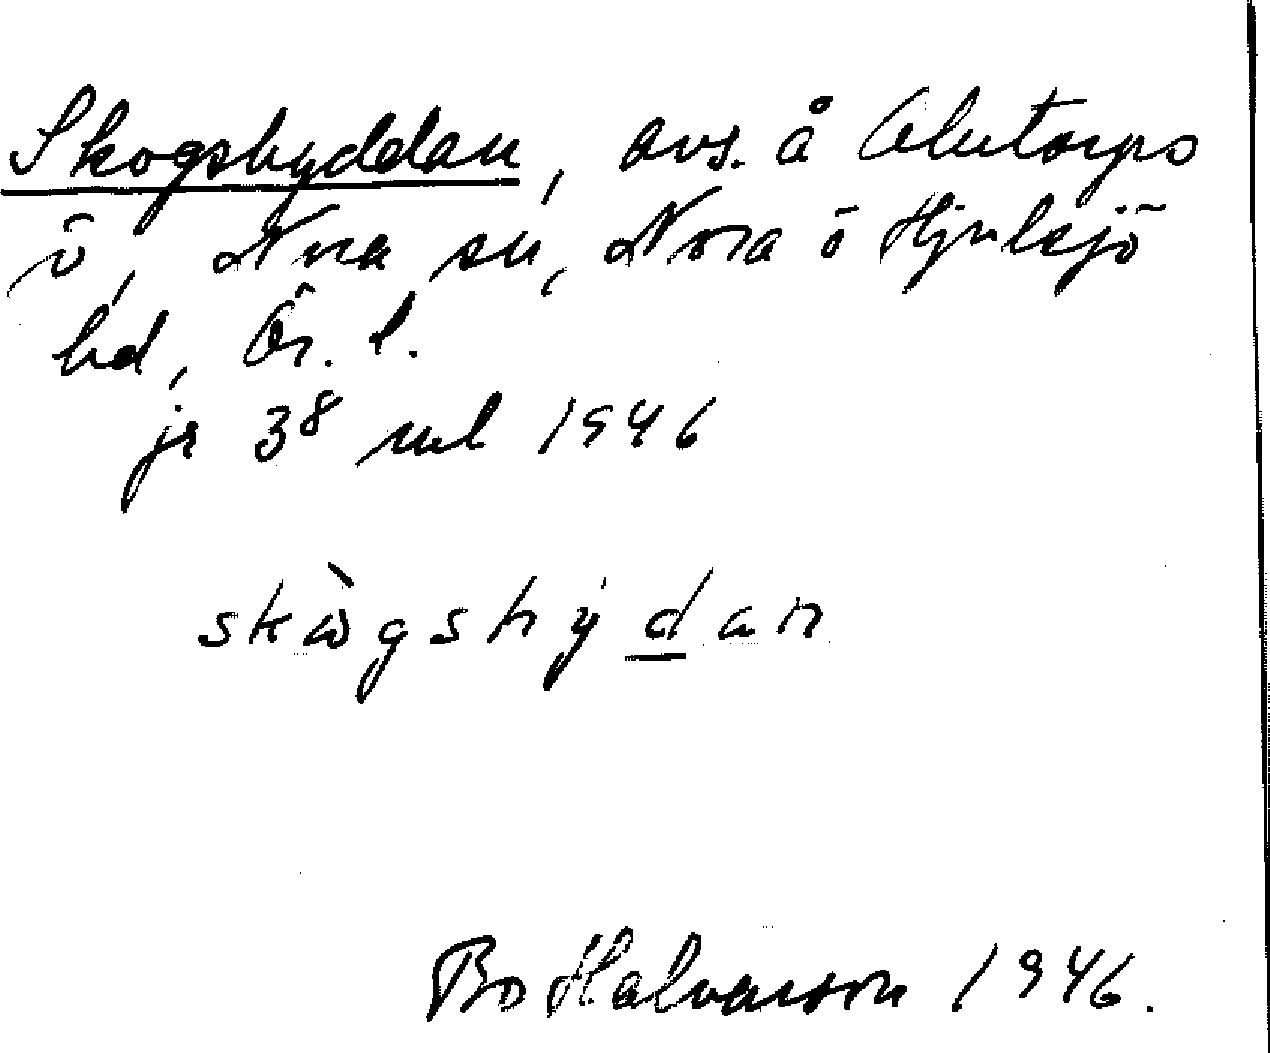 Skogshyddan, avs. å Alntorps
ö, Nora sn, Nora ö Hjulsjö
hd, Ör. l.
jr 38 ml 1946
skògshýdan
Bo Halvarson 1946.